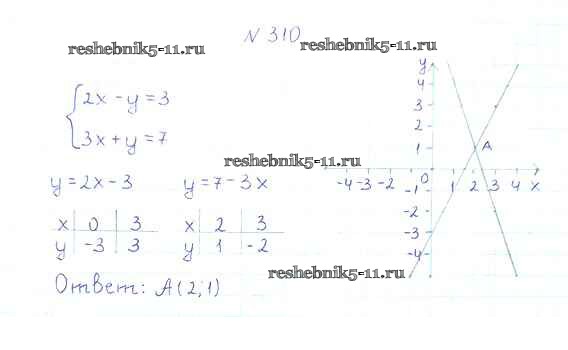 N 310
reshebnik5-11.ru
reshebnik5-11.ru
2x - y = 3
3x + y = 7
reshebnik5-11.ru
y = 2x - 3
y = 7 - 3x
x 0 3
y -3 3
x 2 3
y 1 -2
reshebnik5-11.ru
Ответ: A(2;1)
y
4
3
2
1
A
-4 -3 -2 0 1 2 3 4 x
-1
-2
-3
-4